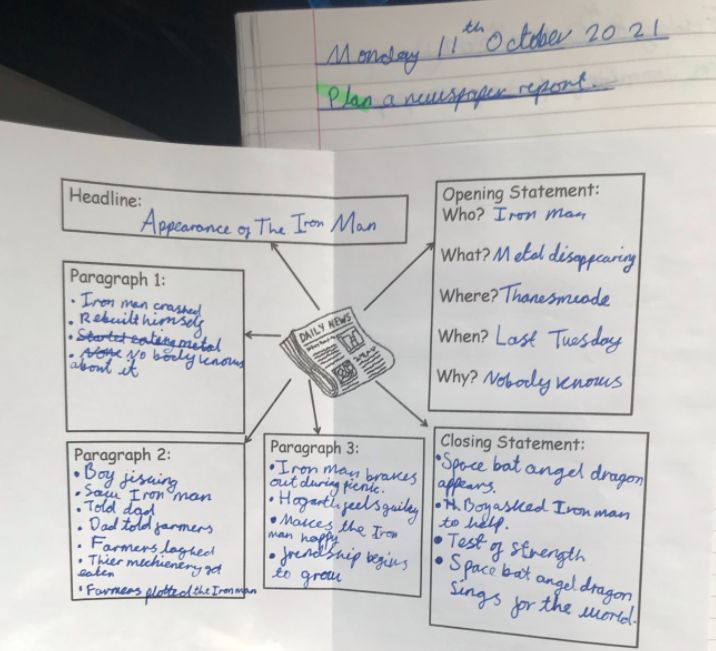 Monday 11th October 2021
Plan a newspaper report.
Headline:
Appearance of The Iron Man
Opening Statement:
Who? Iron man
What? Metal disappearing
Where? Thanesmeade
When? Last Tuesday
Why? Nobody knows
Paragraph 1:
• Iron man crashed
• Rebuilt himself
• Started eating metal
• None No body knows
about it
DAILY NEWS
Paragraph 2:
• Boy fishing
• Saw Iron man
• Told dad
• Dad told farmers
• Farmers laghed
• Thier mechienery got
eaten
• Farmers plotted the Iron man
Paragraph 3:
• Iron man brakes
out during picnic.
• Hogarth feels guiley
• Makes the Iron
man happy
• friendship begins
to grow
Closing Statement:
• Space bat angel dragon
appears.
• H Boy asked Iron man
to help.
• Test of strength
• Space bat angel dragon
Sings for the world.